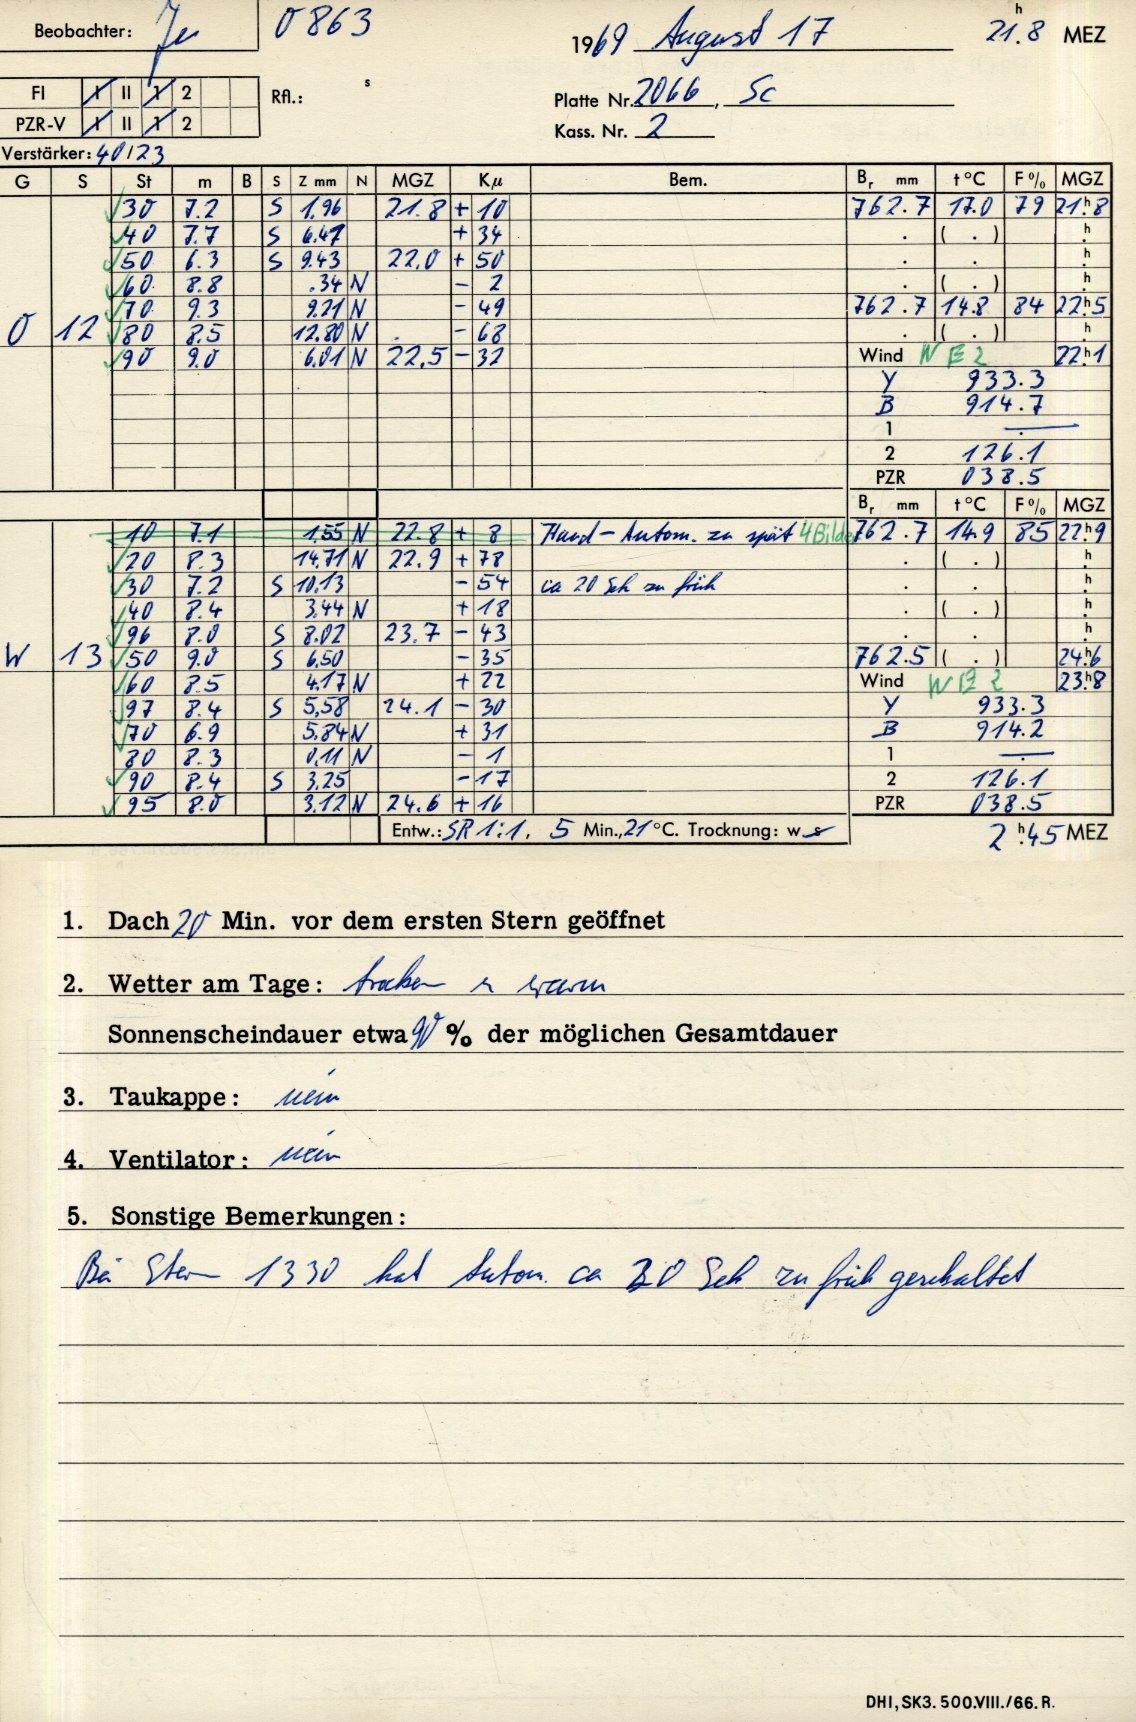 Beobachter: Ju 0863 1969 August 17 21.8 h MEZ
FI I II 1 2 Rfl.: s Platte Nr. 2066, Sc
PZR-V I II 1 2 Kass. Nr. 2
Verstärker: 40/23
G S St m B S Z mm N MGZ Kμ Bem. Br mm t °C F % MGZ
30 7.2 S 1.96 21.8 + 10 762.7 17.0 79 21h8
40 7.7 S 6.47 + 34 . ( . ) h
50 6.3 S 9.43 22.0 + 50 . . h
60 8.8 .34 N - 2 . ( . ) h
70 9.3 9.21 N - 49 762.7 14.8 84 22h5
O 12 80 8.5 12.80 N - 68 . ( . ) h
90 9.0 6.01 N 22.5 - 32 Wind W E 2 22h1
Y 933.3
B 914.7
1 —
2 126.1
PZR 038.5
Br mm t °C F % MGZ
10 7.1 1.55 N 22.8 + 8 Hand - Autom. zu spät 4 Bilder 762.7 14.9 85 22h9
20 8.3 14.71 N 22.9 + 78 . ( . ) h
30 7.2 S 10.13 - 54 ca 20 Sek zu früh . . h
40 8.4 3.44 N + 18 . ( . ) h
96 8.0 S 8.02 23.7 - 43 . . h
W 13 50 9.0 S 6.50 - 35 762.5 ( . ) 24h6
60 8.5 4.17 N + 22 Wind W E 2 23h8
97 8.4 S 5,58 24.1 - 30 Y 933.3
70 6.9 5.84 N + 31 B 914.2
80 8.3 0.11 N - 1 1 —
90 8.4 S 3.25 - 17 2 126.1
95 8.0 3.12 N 24.6 + 16 PZR 038.5
Entw.: SR 1:1, 5 Min., 21 °C. Trocknung: w s 2 h 45 MEZ
1. Dach 20 Min. vor dem ersten Stern geöffnet
2. Wetter am Tage: trocken u warm
Sonnenscheindauer etwa 90 % der möglichen Gesamtdauer
3. Taukappe: nein
4. Ventilator: nein
5. Sonstige Bemerkungen:
Bei Stern 1330 hat Autom. ca 30 Sek zu früh geschaltet
DHI, SK3. 500.VIII./66. R.